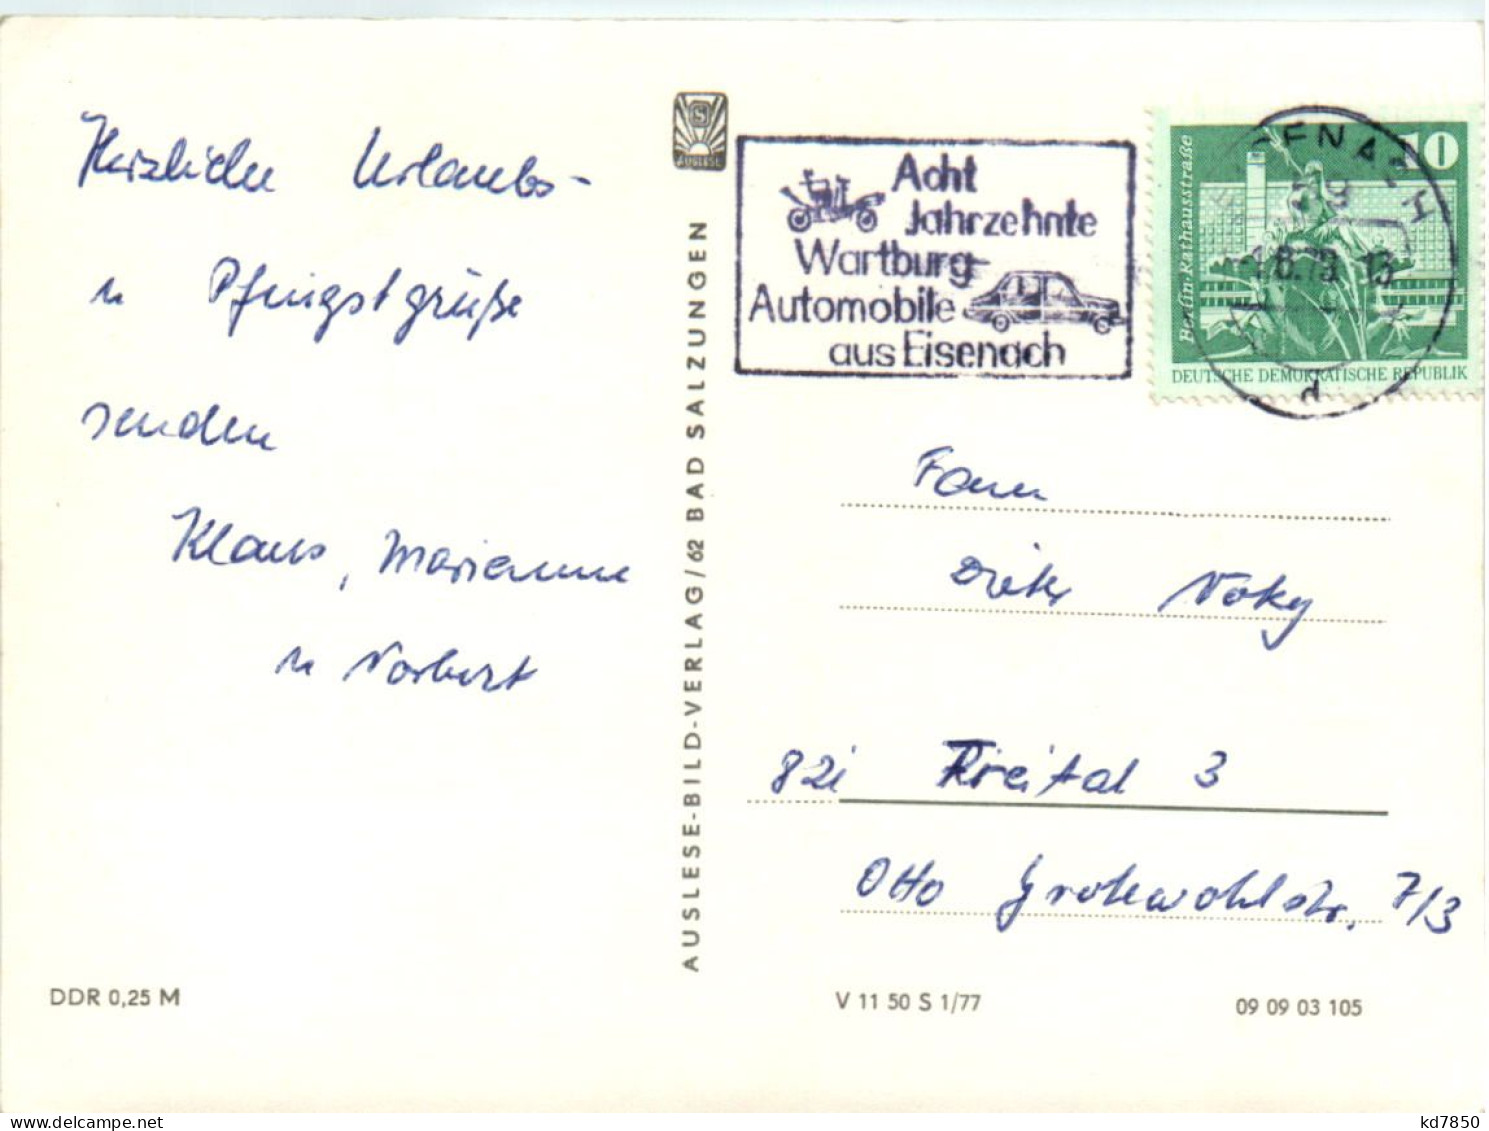 Herzliche Urlaubs-
u Pfingstgrüße
senden
Klaus, Marianne
u Norbert
DDR 0,25 M
AUSLESE
AUSLESE-BILD-VERLAG/62 BAD SALZUNGEN
Acht
Jahrzehnte
Wartburg-
Automobile
aus Eisenach
10
Berlin-Rathausstraße
DEUTSCHE DEMOKRATISCHE REPUBLIK
d
Fam
Dieter
821 Freital 3
Otto Grotewohlstr. 7/3
V 11 50 S 1/77
09 09 03 105
kd7850